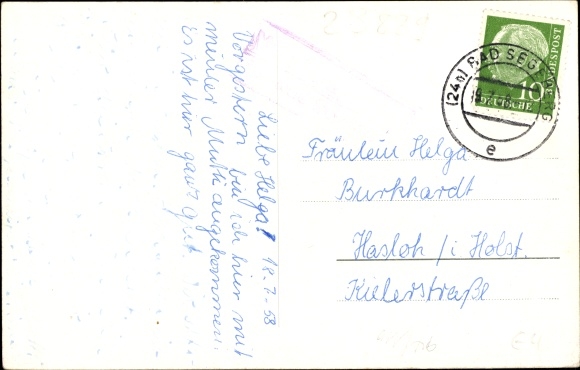 Liebe Helga! 18.7.58
Vorgestern bin ich hier mit
meiner Mutti angekommen.
Es ist hier ganz gut
Fräulein Helga
Burkhardt
Hasloh / i Holst.
Kielerstraße
(24b) BAD SEGEBERG
e
10
DEUTSCHE
BUNDESPOST